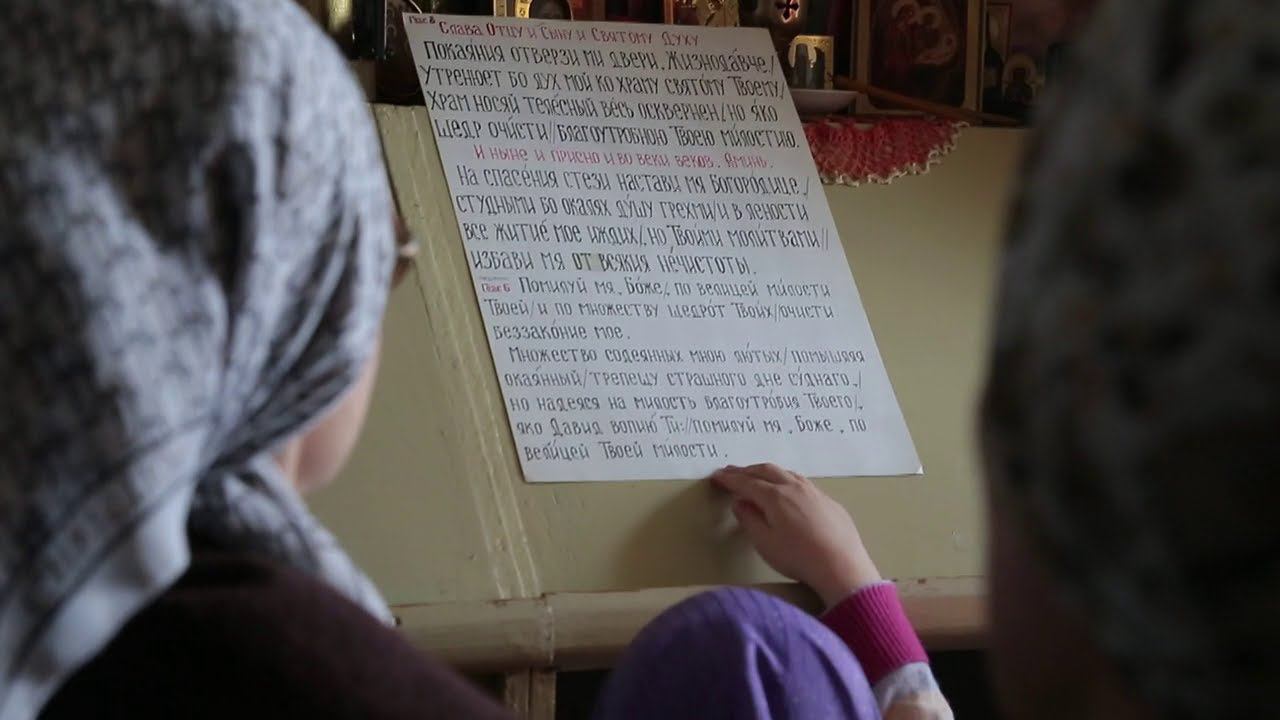 Глас 8 Слава Отцу и Сыну и Святому Духу
Покая́ния отверзи ми двери, Жизнода́вче/
утренюет бо дух мой ко храму свято́му Твоему/
храм нося́й теле́сный весь осквернен/но я́ко
щедр очи́сти//благоутробною Твоею ми́лостию.
И ныне и присно и во веки веков. Аминь.
На спасе́ния стези настави мя Богоро́дице,/
студными бо окалях ду́шу грехми/и в лености
все житие́ мое иждих/, но Твои́ми моли́твами//
избави мя от всякия нечистоты.
Глас 6 Помилуй мя, Бо́же, по велицей ми́лости
Твоей/и по множеству щедро́т Твои́х//очисти
беззако́ние мое.
Множество содеянных мною лю́тых/помышляя
окая́нный/трепещу страшного дне су́днаго,/
но надеяся на милость благоутро́бия Твоего/,
яко Давид вопию́ Ти://помилуй мя, Боже, по
вели́цей Твоей ми́лости.